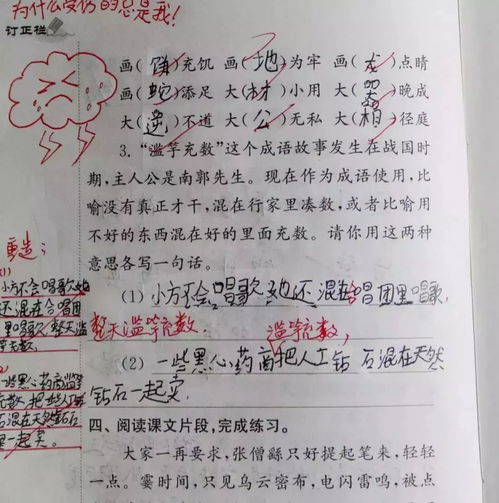 为什么受伤的总是我!
订正栏
画(饼)充饥 画(地)为牢 画(龙)点睛
画(蛇)添足 大(材)小用 大(器)晚成
大(逆)不道 大(公)无私 大(相)径庭
3. “滥竽充数”这个成语故事发生在战国时
期,主人公是南郭先生。现在作为成语使用,比
喻没有真正才干,混在行家里凑数,或者比喻用
不好的东西混在好的里面充数。请你用这两种
意思各写一句话。
重造:
(1)
小方不会唱歌她
还混在合唱团
里唱歌,整天滥
竽充数.
(1) 小方不会唱歌,她还混在合唱团里唱歌,
整天滥竽充数.
滥竽充数,
(2) 一些黑心药商把人工钻石混在天然
钻石一起卖.
一些黑心药商滥竽
充数,把人工钻
石混在天然钻石
里一起卖.
四、阅读课文片段,完成练习。
大家一再要求,张僧繇只好提起笔来,轻轻
一点。霎时间,只见乌云密布,电闪雷鸣,被点